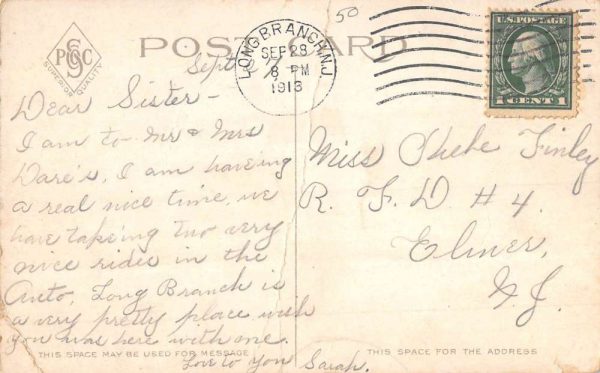 P S G C
SUPERIOR QUALITY
POST CARD
50
LONG BRANCH, N.J.
SEP 28
8 PM
1913
U.S. POSTAGE
1 CENT 1
Sept
Dear Sister -
I am to Mr & Mrs
Dare's, I am haveing
a real nice time, we
have takeing two very
nice rides in the
Auto, Long Branch is
a very pretty place wish
you was here with me.
Love to you Sarah.
Miss Phebe Finley
R. F. D. # 4.
Elmer,
N. J.
THIS SPACE MAY BE USED FOR MESSAGE
THIS SPACE FOR THE ADDRESS